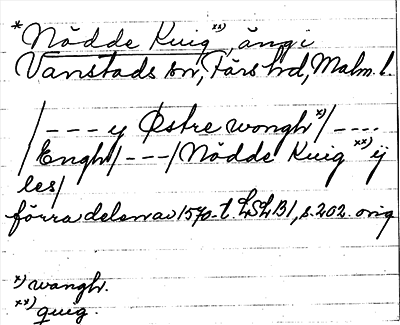 *Nödde Kuig xx), äng i
Vanstads sn, Färs hd, Malm. l.
/ - - - y Østre wongh x)/ - - - -
/Engh/ - - - /Nödde Kuig xx) ij
les/
förra delen av 1570-t. LSLB1, s. 202. orig
x) wangh.
xx) quig.